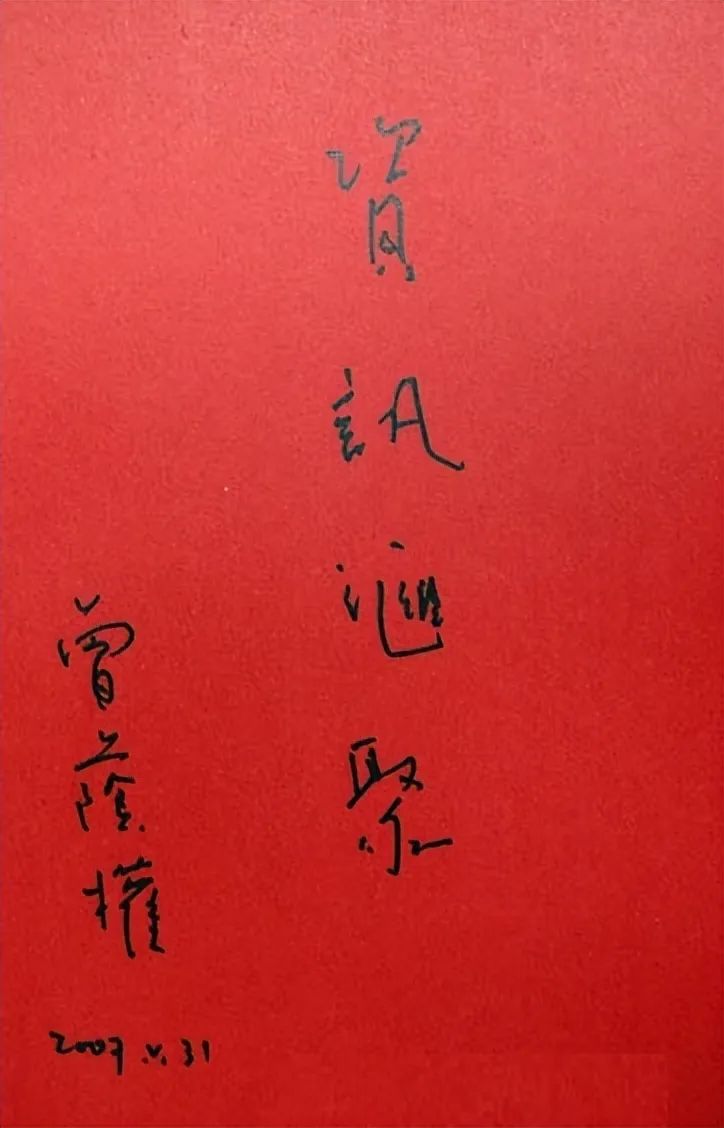 資訊滙聚
曾蔭權
2007.V.31